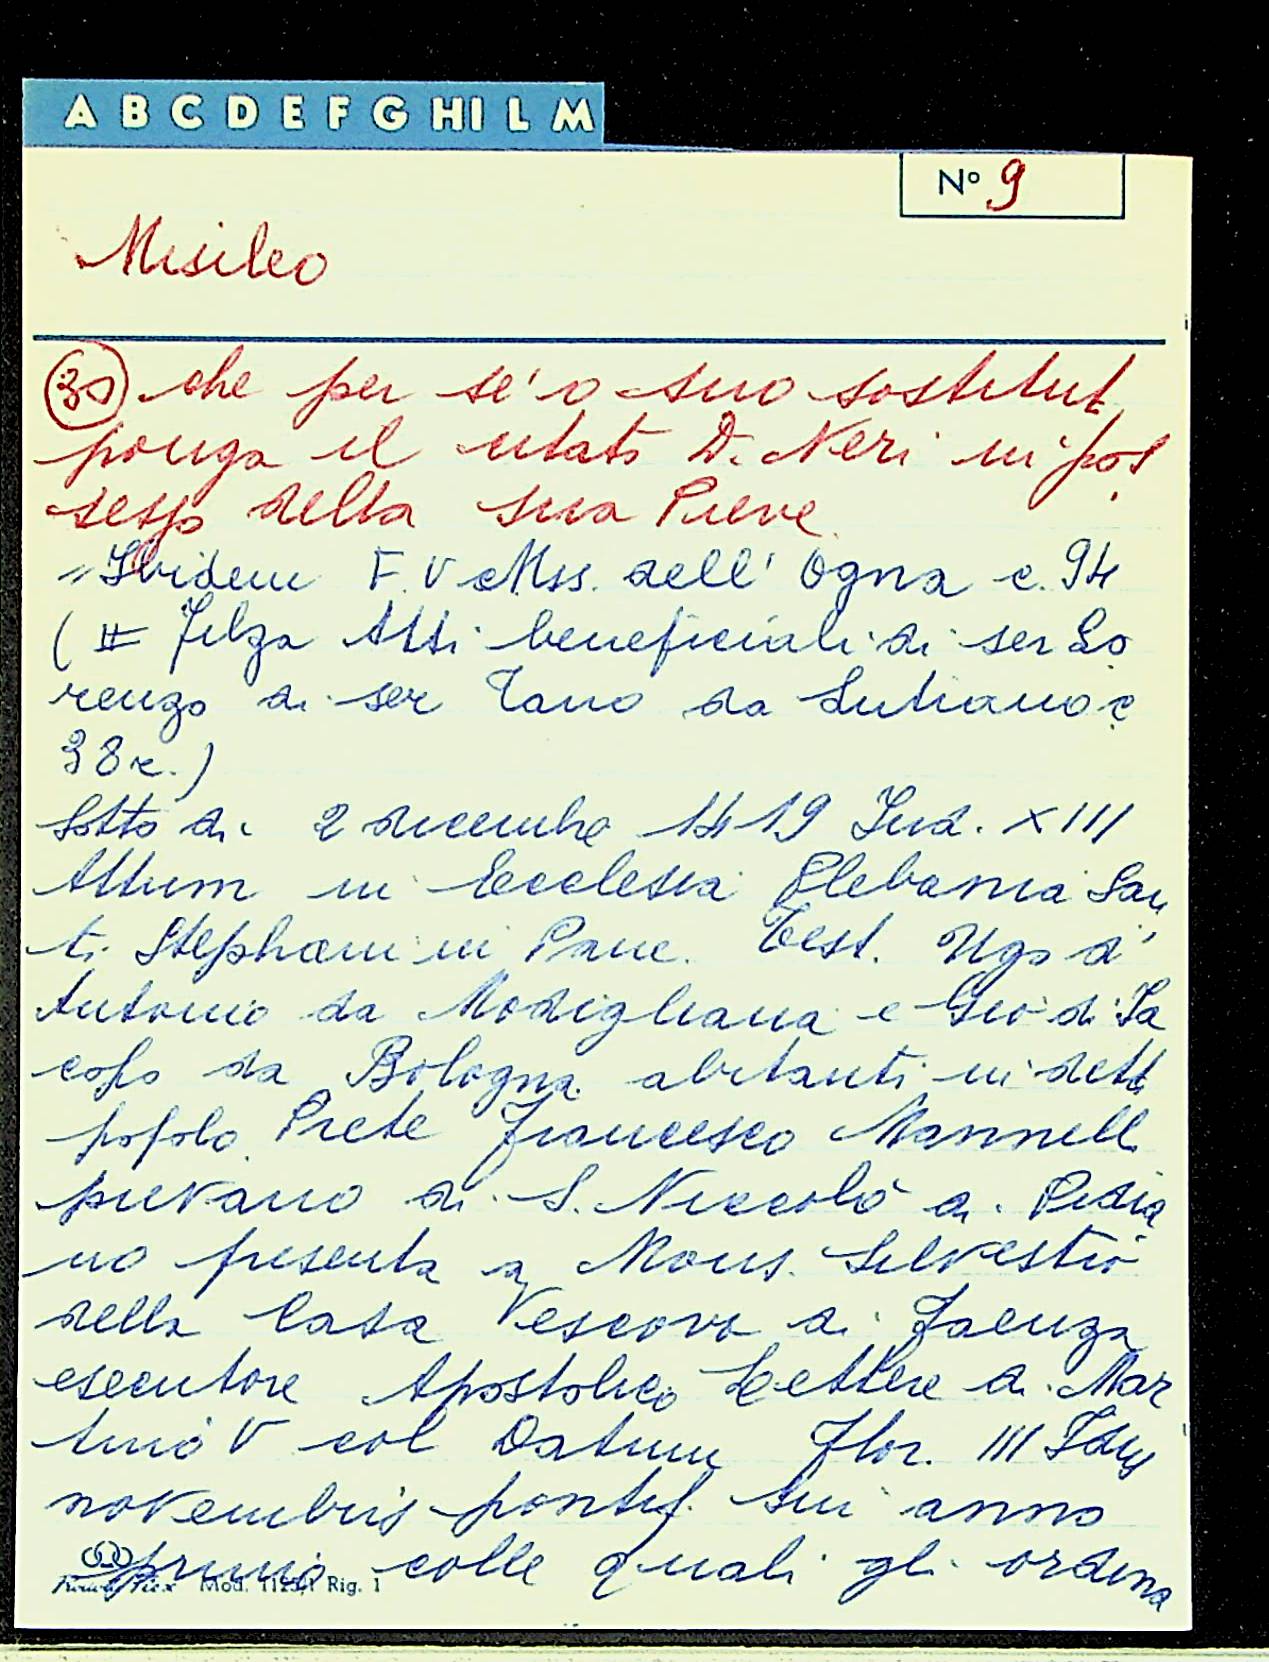 A B C D E F G HI L M
Nº 9
Misileo
che per se' o suo sostitut
ponga il citato D. Neri in pos
sesso della sua Pieve
" Ibidem F. V Mss. dell' Ogna c. 94
( # Filza Atti beneficiali di ser Lo
renzo di ser Tano da Lutiano c
38 r. )
Sotto di 2 dicembre 1419 Ind. XIII
Attum in Ecclesia Plebania San
ti Stephani in Pane. Test. Ugo d'
Antonio da Modigliana e Gio di Ja
copo da Bologna abitanti in dett
popolo. Prete Francesco Mannell
pievano di S. Niccolò a
no presenta a Mons. Silvestro
della Casa Vescovo di Faenza
esecutore Apostolico Lettere di Mar
tino V col Datum Flor. III Idus
novembris pontif. sui anno
primo colle quali gli ordina
Mod. 1125/1 Rig. 1